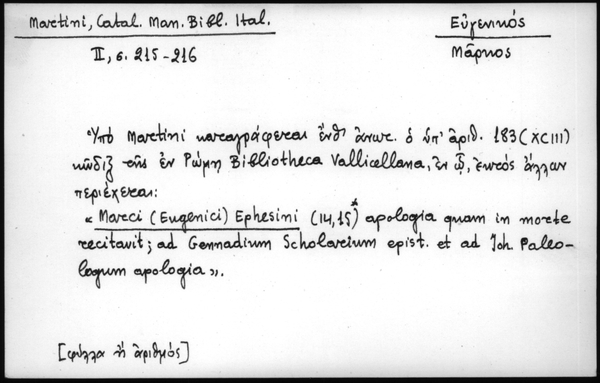 Martini, Catal. Man. Bibl. Ital.
Εὐγενικός
II, σ. 215-216
Μᾶρκος
Ὑπὸ Martini καταγράφεται ἐνθ' ἀνωτ. ὁ ὑπ' ἀριθ. 183 (XCIII)
κῶδιξ τῆς ἐν Ρώμῃ Bibliotheca Vallicellana, ἐν ᾧ, ἐκτός ἄλλων
περιέχεται:
« Marci (Eugenici) Ephesini (14,15*) apologia quam in morte
recitavit; ad Gennadium Scholarium epist. et ad Joh. Paleo-
logum apologia».
[φύλλα ἢ ἀριθμός]